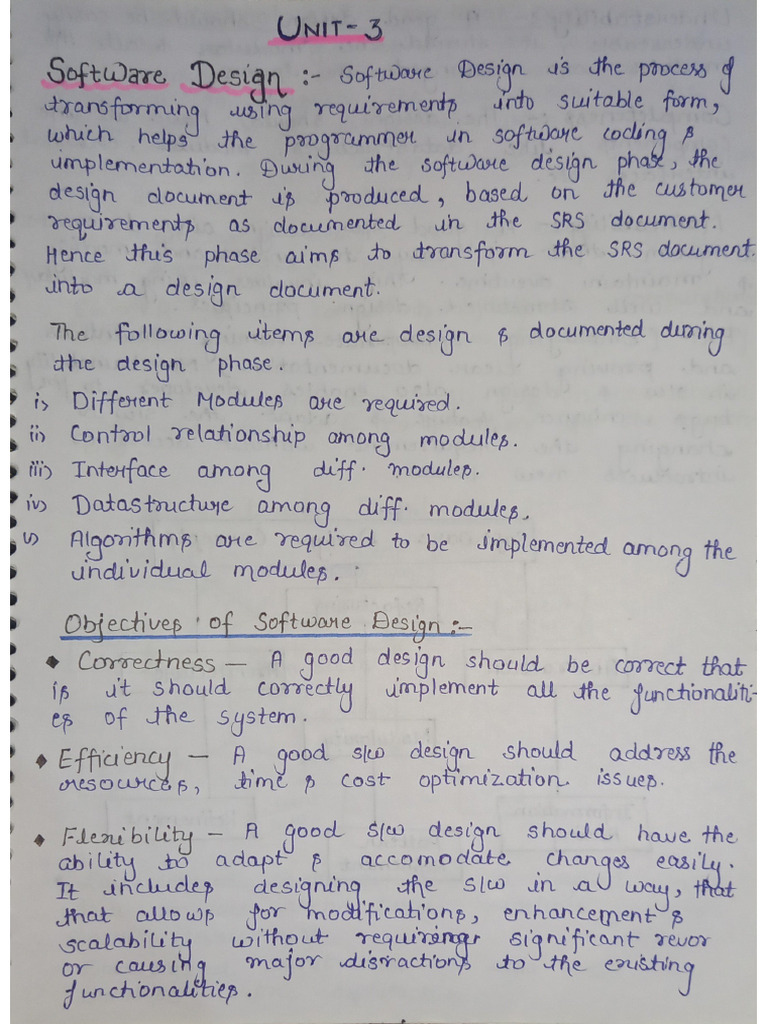 UNIT-3
Software Design :- Software Design is the process of
transforming using requirements into suitable form,
which helps the programmer in software coding &
implementation. During the software design phase, the
design document is produced, based on the customer
requirements as documented in the SRS document.
Hence this phase aims to transform the SRS document
into a design document.
The following items are design & documented during
the design phase.
i) Different Modules are required.
ii) Control relationship among modules.
iii) Interface among diff. modules.
iv) Datastructure among diff. modules.
v) Algorithms are required to be implemented among the
individual modules.
Objectives of Software Design :-
◆ Correctness — A good design should be correct that
is it should correctly implement all the functionaliti-
es of the system.
◆ Efficiency — A good s/w design should address the
resources, time & cost optimization issues.
◆ Flexibility — A good s/w design should have the
ability to adapt & accomodate changes easily.
It includes designing the s/w in a way, that
that allows for modifications, enhancement &
scalability without requiring significant revor
or causing major disractions to the existing
functionalities.